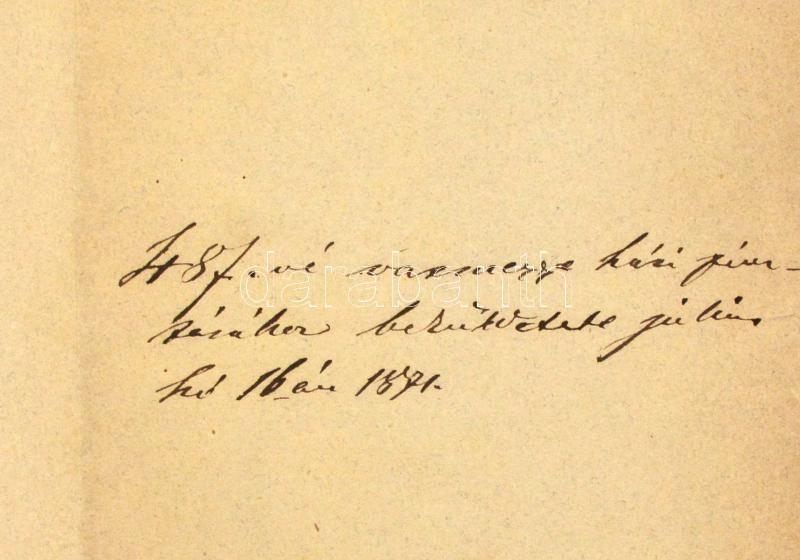 48 f. vé vasmegye házi pénz-
tárához beküldetett július
hó 16-án 1871.
darabanth